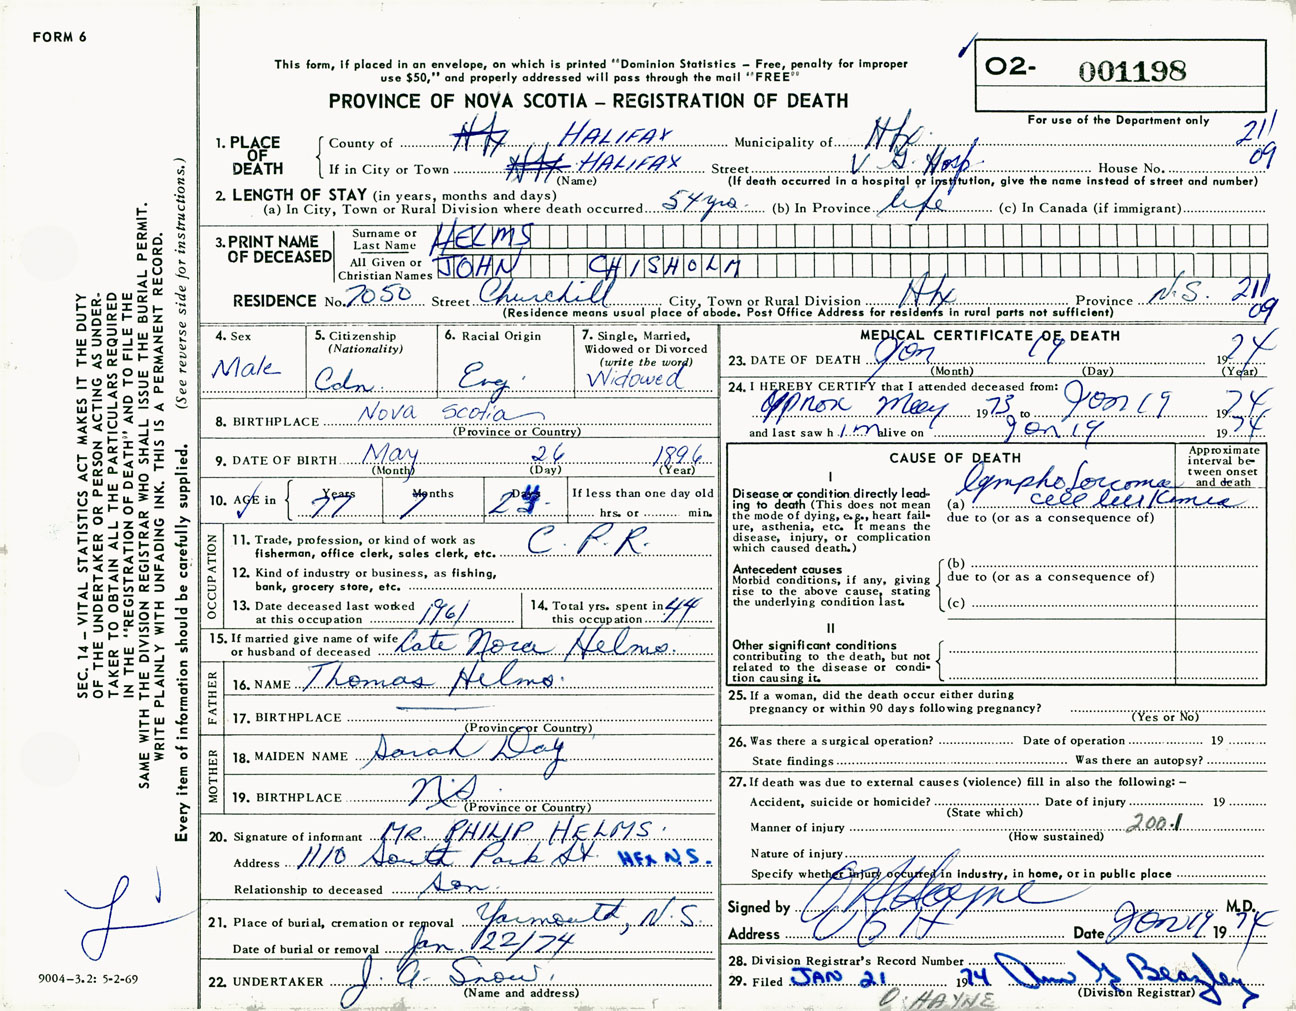 FORM 6
This form, if placed in an envelope, on which is printed "Dominion Statistics – Free, penalty for improper
use $50," and properly addressed will pass through the mail "FREE"
O2- 001198
PROVINCE OF NOVA SCOTIA – REGISTRATION OF DEATH
For use of the Department only
211
09
1. PLACE OF DEATH
County of HALIFAX Municipality of Hfx.
If in City or Town HALIFAX Street V G Hosp. House No.
(Name) (If death occurred in a hospital or institution, give the name instead of street and number)
2. LENGTH OF STAY (in years, months and days)
(a) In City, Town or Rural Division where death occurred 54 yrs. (b) In Province life (c) In Canada (if immigrant)
3. PRINT NAME OF DECEASED
Surname or Last Name HELMS
All Given or Christian Names JOHN CHISHOLM
RESIDENCE No. 7050 Street Churchill City, Town or Rural Division Hfx Province N.S. 211
(Residence means usual place of abode. Post Office Address for residents in rural parts not sufficient) 09
4. Sex Male
5. Citizenship (Nationality) Cdn.
6. Racial Origin Eng.
7. Single, Married, Widowed or Divorced (write the word) Widowed
8. BIRTHPLACE Nova Scotia
(Province or Country)
9. DATE OF BIRTH May 26 1896
(Month) (Day) (Year)
10. AGE in Years 77 Months 7 Days If less than one day old hrs. or min.
OCCUPATION
11. Trade, profession, or kind of work as fisherman, office clerk, sales clerk, etc. C.P.R.
12. Kind of industry or business, as fishing, bank, grocery store, etc.
13. Date deceased last worked at this occupation 1961
14. Total yrs. spent in this occupation 44
15. If married give name of wife or husband of deceased Late Nora Helms.
FATHER
16. NAME Thomas Helms.
17. BIRTHPLACE
(Province or Country)
MOTHER
18. MAIDEN NAME Sarah Day
19. BIRTHPLACE N.S.
(Province or Country)
20. Signature of informant MR. PHILIP HELMS.
Address 1110 South Park St. HFX N.S.
Relationship to deceased Son.
21. Place of burial, cremation or removal Yarmouth, N.S.
Date of burial or removal Jan. 22/74
22. UNDERTAKER J. A. Snow.
(Name and address)
MEDICAL CERTIFICATE OF DEATH
23. DATE OF DEATH Jan 19 1974
(Month) (Day) (Year)
24. I HEREBY CERTIFY that I attended deceased from:
Approx May 1973 to Jan 19 1974
and last saw him alive on Jan 19 1974
CAUSE OF DEATH
Approximate interval between onset and death
I
Disease or condition directly leading to death (This does not mean the mode of dying, e.g., heart failure, asthenia, etc. It means the disease, injury, or complication which caused death.)
(a) lymphosarcoma cell leukemia
due to (or as a consequence of)
Antecedent causes
Morbid conditions, if any, giving rise to the above cause, stating the underlying condition last.
(b)
due to (or as a consequence of)
(c)
II
Other significant conditions
contributing to the death, but not related to the disease or condition causing it.
25. If a woman, did the death occur either during pregnancy or within 90 days following pregnancy?
(Yes or No)
26. Was there a surgical operation? Date of operation 19
State findings Was there an autopsy?
27. If death was due to external causes (violence) fill in also the following: –
Accident, suicide or homicide? Date of injury 19
(State which)
Manner of injury 200.1
(How sustained)
Nature of injury
Specify whether injury occurred in industry, in home, or in public place
Signed by M.D.
Address Date Jan 19 1974
28. Division Registrar's Record Number
29. Filed JAN 21 1974
(Division Registrar)
O HAYNE
SEC. 14 – VITAL STATISTICS ACT MAKES IT THE DUTY
OF THE UNDERTAKER OR PERSON ACTING AS UNDER-
TAKER TO OBTAIN ALL THE PARTICULARS REQUIRED
IN THE "REGISTRATION OF DEATH" AND TO FILE THE
SAME WITH THE DIVISION REGISTRAR WHO SHALL ISSUE THE BURIAL PERMIT.
WRITE PLAINLY WITH UNFADING INK. THIS IS A PERMANENT RECORD.
Every item of information should be carefully supplied. (See reverse side for instructions.)
9004-3.2: 5-2-69